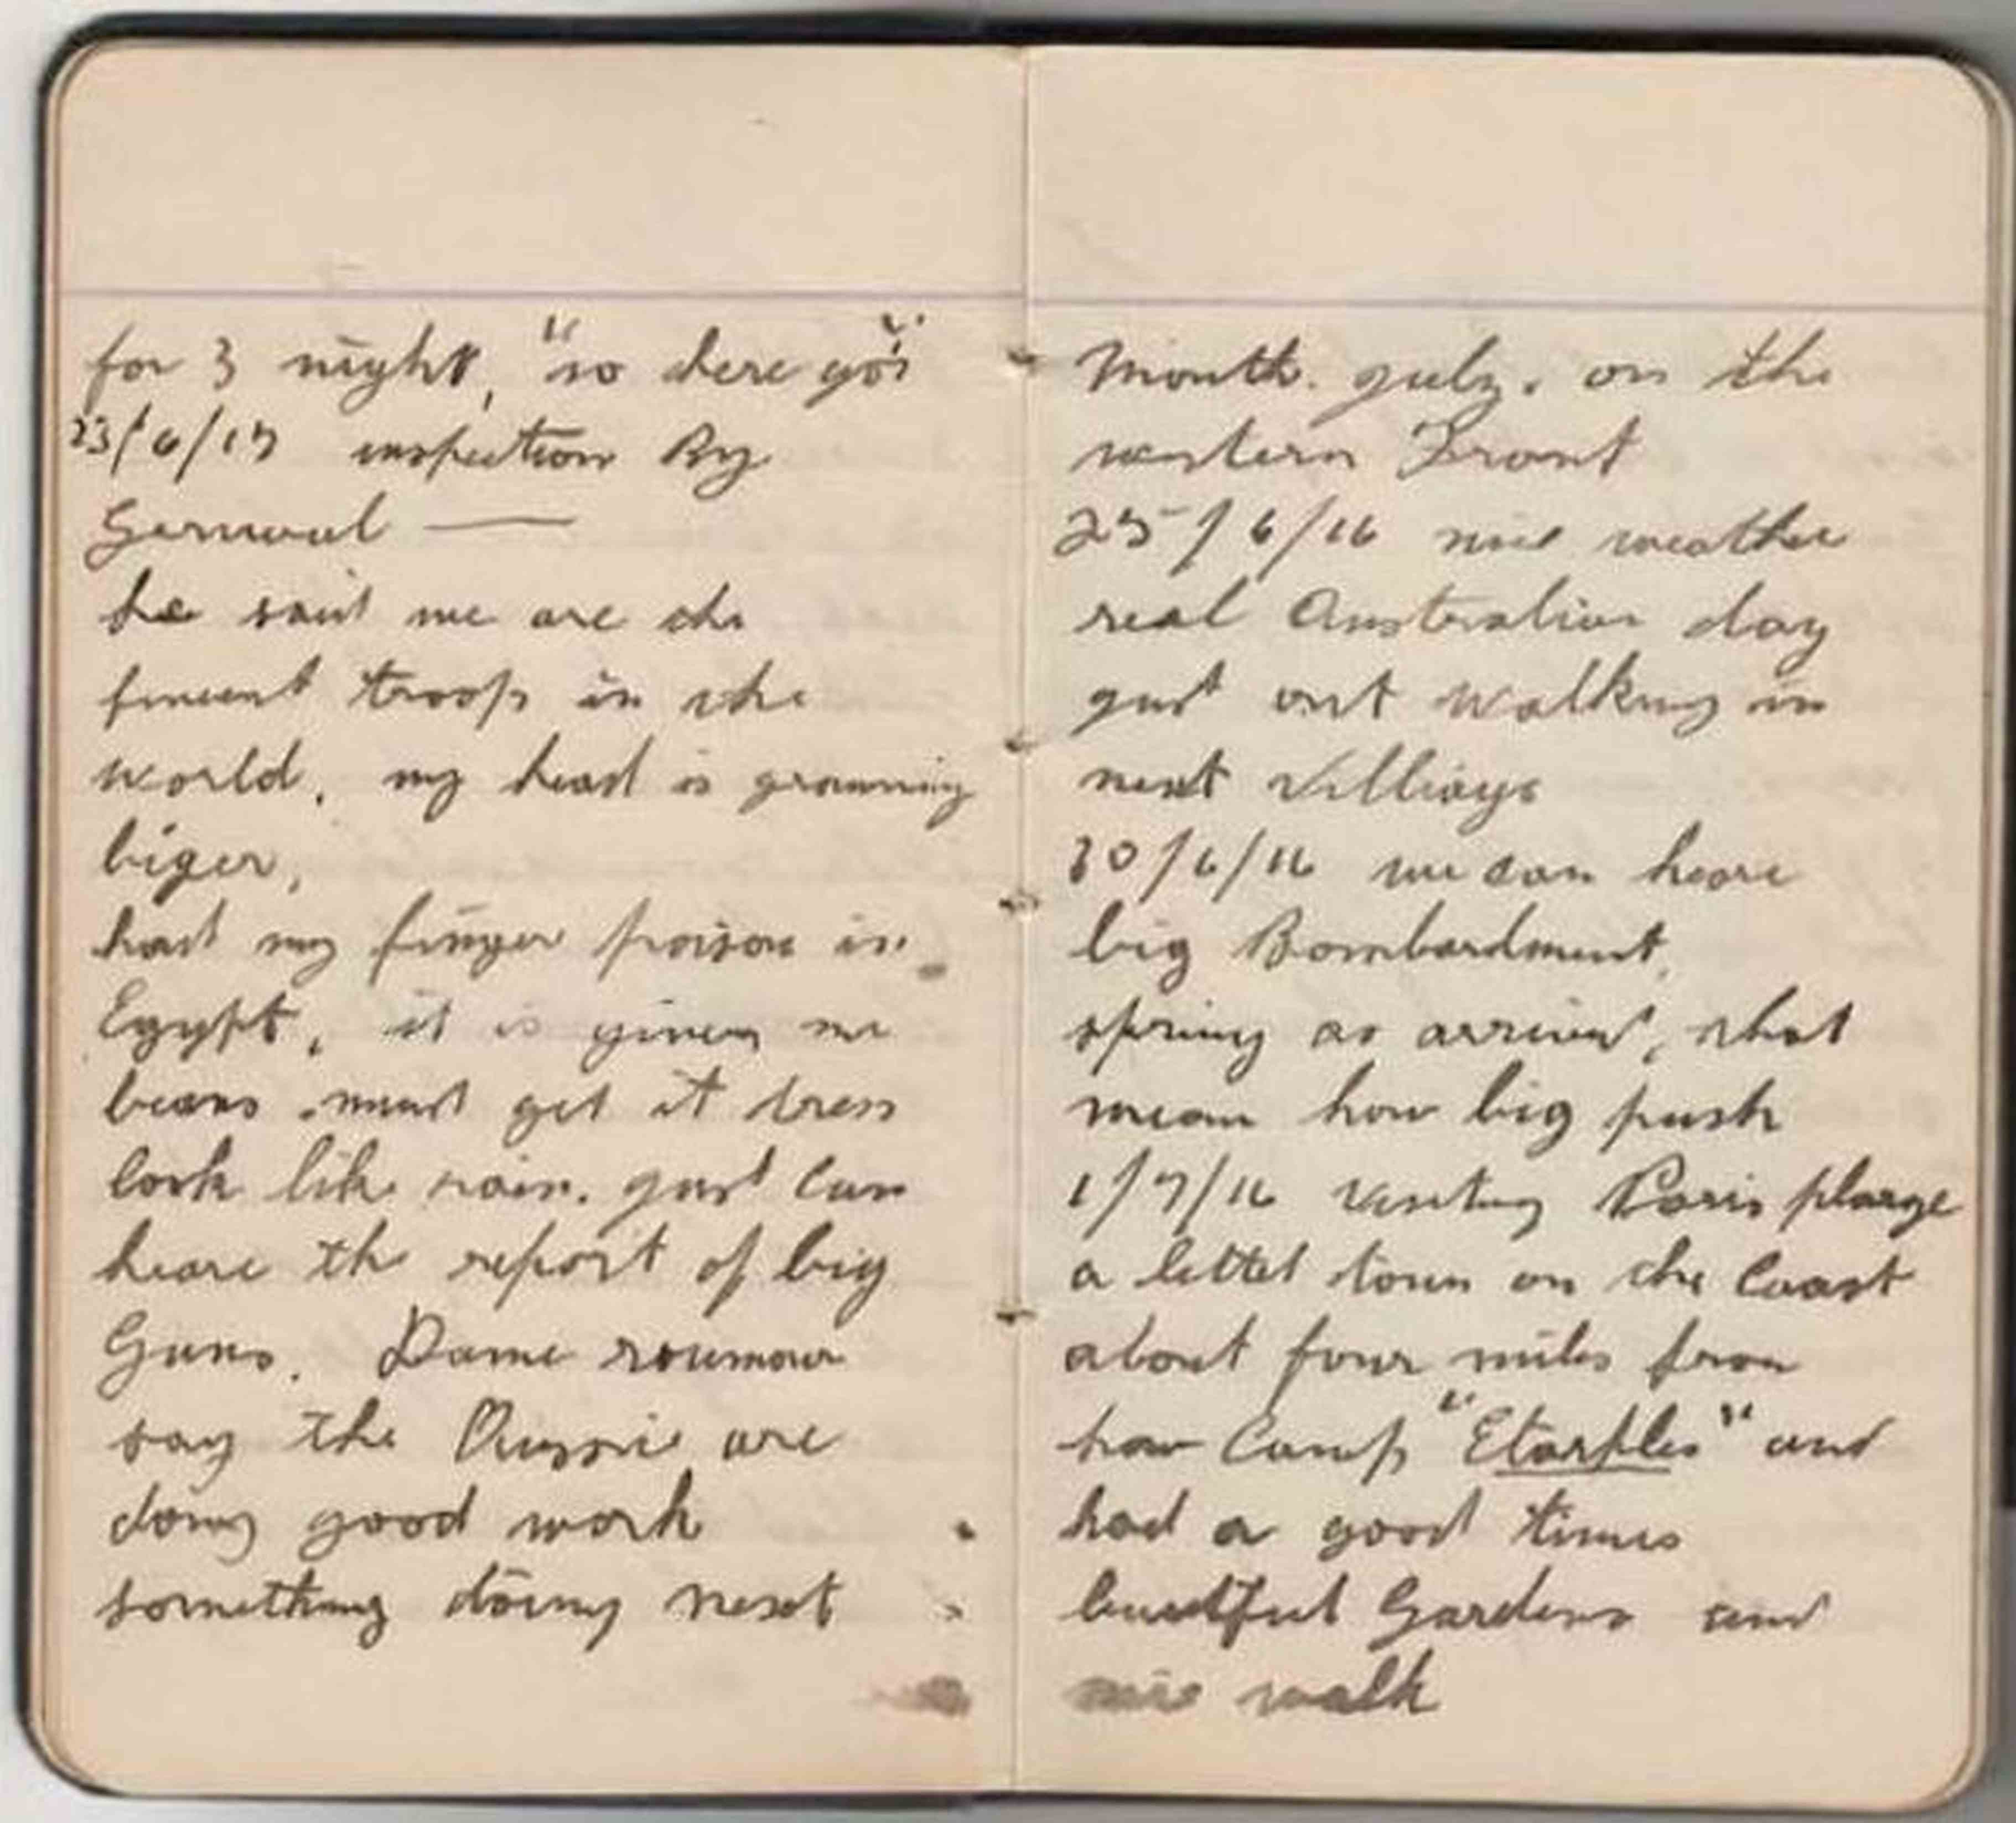 for 3 night, "so there go's"
23/6/17 inspection By
Gernwal —
he said we are the
finest troop in the
world. my head is growning
biger,
had my finger poison in
Egypt, it is giveng me
beans. must get it dress
look like rain. just can
heare the report of big
Guns. Dame roumour
say the Aussie are
doing good work
something doing next
Month. july. on the
western Front
25/6/16 nice weather
real Australian day
just out walking in
next Villiage
30/6/16 we can heare
big Bombardment,
spring as arrived, that
mean how big push
1/7/16 visiting Paris plarge
a littel town on the Coast
about four miles from
how Camp "Etarples" and
had a good times
beautiful Gardens and
nice walk